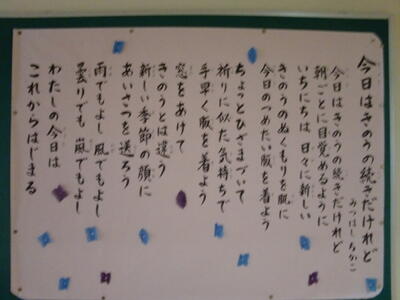 今日はきのうの続きだけれど
みつはしちかこ
今日はきのうの続きだけれど
朝ごとに目覚めるように
いちにちは日々に新しい
きのうのぬくもりを肌に
今日のつめたい服を着よう
ちょっとひざまづいて
祈りに似た気持ちで
手早く服を着よう
窓をあけて
きのうとは違う
新しい季節の顔に
あいさつを送ろう
雨でもよし 風でもよし
曇りでも 嵐でもよし
わたしの今日は
これからはじまる